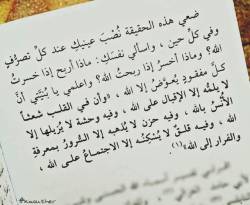 ضعي هذه الحقيقة نُصْبَ عينيكِ عند كلِّ تصرُّفٍ
وفي كلِّ حين، واسألي نفسَكِ: ماذا أربح إذا خسرتُ
الله؟ وماذا أخسرُ إذا ربحتُ الله؟ واعلمي يا بُنيَّتي أنَّ
كلَّ مفقودٍ يُعوَّضُ إلا الله، «وأن في القلب شَعثاً
لا يلمُّه إلا الإقبال على الله، وفيه وحشة لا يُزيلها إلا
الأُنْسُ بالله، وفيه حزن لا يُذهبه إلا السُّرورُ بمعرفةِ
الله، وفيه قلقٌ لا يُسكِّنُه إلا الاجتماعُ على الله،
والفرار إلى الله»(١).